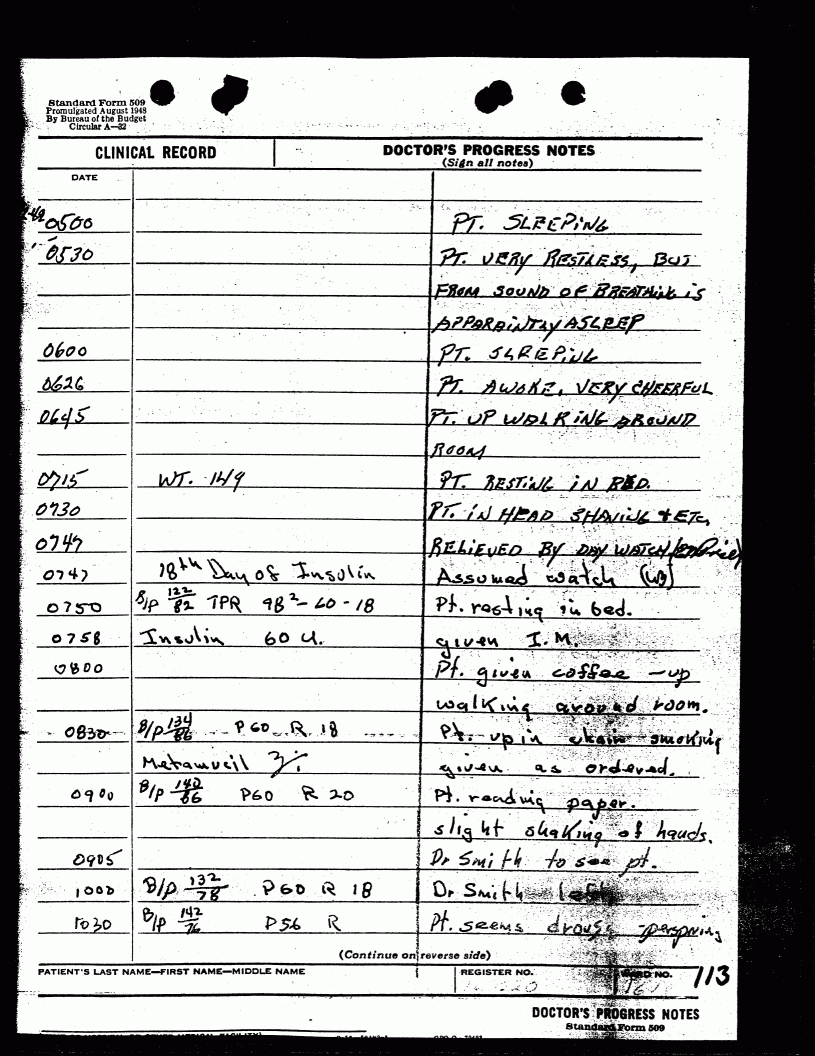 Standard Form 509
Promulgated August 1948
By Bureau of the Budget
Circular A—32
CLINICAL RECORD DOCTOR'S PROGRESS NOTES
(Sign all notes)
DATE
0500 PT. SLEEPING
0530 PT. VERY RESTLESS, BUT
FROM SOUND OF BREATHING IS
APPARAINTLY ASLEEP
0600 PT. SLEEPING
0626 PT. AWOKE, VERY CHEERFUL
0645 PT. UP WALKING AROUND
ROOM
0715 WT. 149 PT. RESTING IN BED.
0730 PT. IN HEAD SHAVING + ETC,
0747 RELIEVED BY DAY WATCH
0747 18th Day of Insulin Assumed watch
0750 B/P 122/82 TPR 98² - 60 - 18 Pt. resting in bed.
0758 Insulin 60 U. given I.M.
0800 Pt. given coffee — up
walking around room.
0830 B/P 134/86 P 60 R 18 Pt. up in chair smoking
Metamveil given as ordered.
0900 B/P 140/86 P60 R 20 Pt. reading paper.
slight shaking of hands.
0905 Dr Smith to see pt.
1000 B/P 132/78 P60 R 18 Dr Smith left
1030 B/P 142/76 P56 R Pt. seems drousy - perspring
(Continue on reverse side)
PATIENT'S LAST NAME—FIRST NAME—MIDDLE NAME REGISTER NO. WARD NO. 113
DOCTOR'S PROGRESS NOTES
Standard Form 509